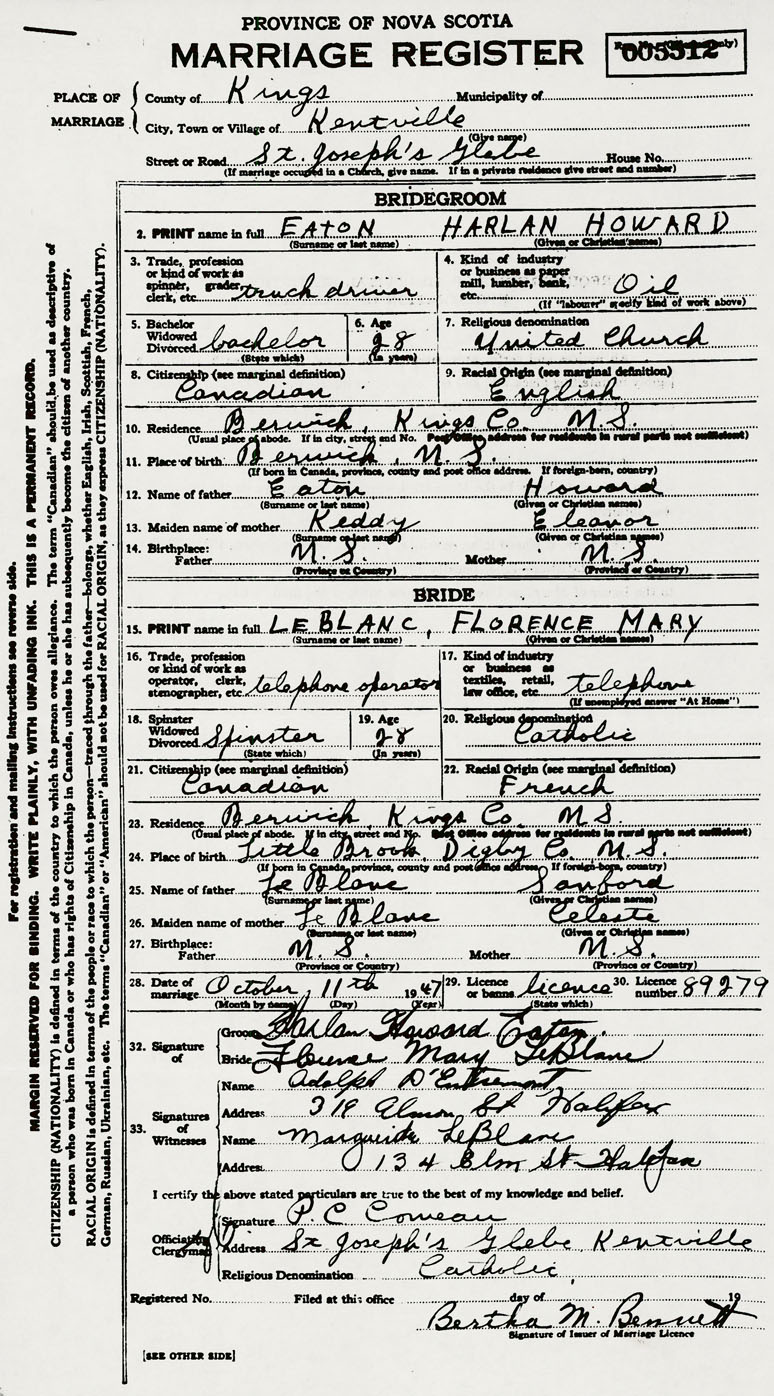 PROVINCE OF NOVA SCOTIA
MARRIAGE REGISTER
005512
PLACE OF MARRIAGE
County of Kings Municipality of
City, Town or Village of Kentville
(Give name)
Street or Road St. Joseph's Glebe House No.
(If marriage occupied in a Church, give name. If in a private residence give street and number)
BRIDEGROOM
2. PRINT name in full EATON HARLAN HOWARD
(Surname or last name) (Given or Christian names)
3. Trade, profession or kind of work as spinner, grader, clerk, etc. truck driver
4. Kind of industry or business as paper mill, lumber, bank, etc. Oil
(If "labourer" specify kind of work above)
5. Bachelor Widowed Divorced bachelor (State which)
6. Age 28 (In years)
7. Religious denomination United Church
8. Citizenship (see marginal definition) Canadian
9. Racial Origin (see marginal definition) English
10. Residence Berwick, Kings Co. N.S.
(Usual place of abode. If in city, street and No. Post Office address for residents in rural parts not sufficient)
11. Place of birth Berwick, N.S.
(If born in Canada, province, county and post office address. If foreign-born, country)
12. Name of father Eaton Howard
(Surname or last name) (Given or Christian names)
13. Maiden name of mother Keddy Eleanor
(Surname or last name) (Given or Christian names)
14. Birthplace: Father N.S. Mother N.S.
(Province or Country) (Province or Country)
BRIDE
15. PRINT name in full LE BLANC, FLORENCE MARY
(Surname or last name) (Given or Christian names)
16. Trade, profession or kind of work as operator, clerk, stenographer, etc. telephone operator
17. Kind of industry or business as textiles, retail, law office, etc. telephone
(If unemployed answer "At Home")
18. Spinster Widowed Divorced Spinster (State which)
19. Age 28 (In years)
20. Religious denomination Catholic
21. Citizenship (see marginal definition) Canadian
22. Racial Origin (see marginal definition) French
23. Residence Berwick, Kings Co. N.S.
(Usual place of abode. If in city, street and No. Post Office address for residents in rural parts not sufficient)
24. Place of birth Little Brook, Digby Co. N.S.
(If born in Canada, province, county and post office address. If foreign-born, country)
25. Name of father Le Blanc Sanford
(Surname or last name) (Given or Christian names)
26. Maiden name of mother Le Blanc Celeste
(Surname or last name) (Given or Christian names)
27. Birthplace: Father N.S. Mother N.S.
(Province or Country) (Province or Country)
28. Date of marriage October 11th 1947
(Month by name) (Day) (Year)
29. Licence or banns licence (State which)
30. Licence number 89279
32. Signature of
Groom Harlan Howard Eaton.
Bride Florence Mary LeBlanc
33. Signatures of Witnesses
Name Adolph D'Entremont
Address 319 St Halifax
Name Marguerite LeBlanc
Address 134 Elm St Halifax
I certify the above stated particulars are true to the best of my knowledge and belief.
Officiating Clergyman
Signature P. C Comeau
Address St Joseph's Glebe, Kentville
Religious Denomination Catholic
Registered No. Filed at this office day of 19
Bertha M. Bennett
Signature of Issuer of Marriage Licence
[SEE OTHER SIDE]
For registration and mailing instructions see reverse side.
MARGIN RESERVED FOR BINDING. WRITE PLAINLY, WITH UNFADING INK. THIS IS A PERMANENT RECORD.
CITIZENSHIP (NATIONALITY) is defined in terms of the country to which the person owes allegiance. The term "Canadian" should be used as descriptive of
a person who was born in Canada or who has rights of Citizenship in Canada, unless he or she has subsequently become the citizen of another country.
RACIAL ORIGIN is defined in terms of the people or race to which the person—traced through the father—belongs, whether English, Irish, Scottish, French,
German, Russian, Ukrainian, etc. The terms "Canadian" or "American" should not be used for RACIAL ORIGIN, as they express CITIZENSHIP (NATIONALITY).